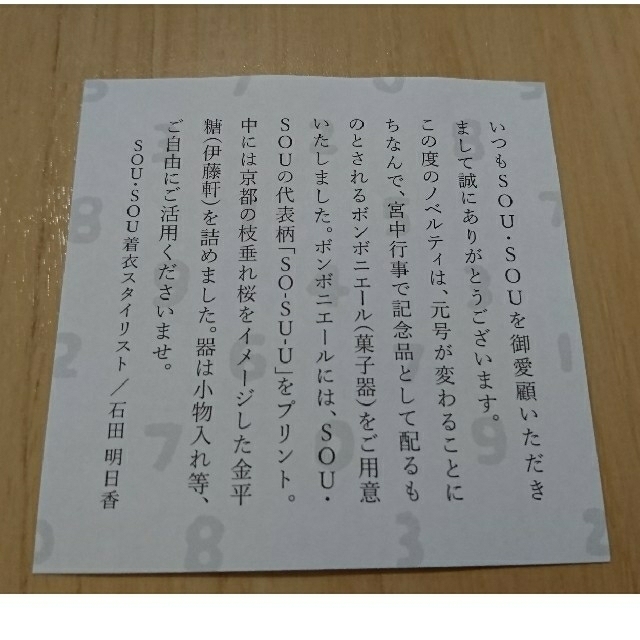 いつもSOU・SOUを御愛顧いただき
まして誠にありがとうございます。
この度のノベルティは、元号が変わることに
ちなんで、宮中行事で記念品として配るも
のとされるボンボニエール(菓子器)をご用意
いたしました。ボンボニエールには、SOU・
SOUの代表柄「SO-SU-U」をプリント。
中には京都の枝垂れ桜をイメージした金平
糖(伊藤軒)を詰めました。器は小物入れ等、
ご自由にご活用くださいませ。
SOU・SOU着衣スタイリスト／石田 明日香